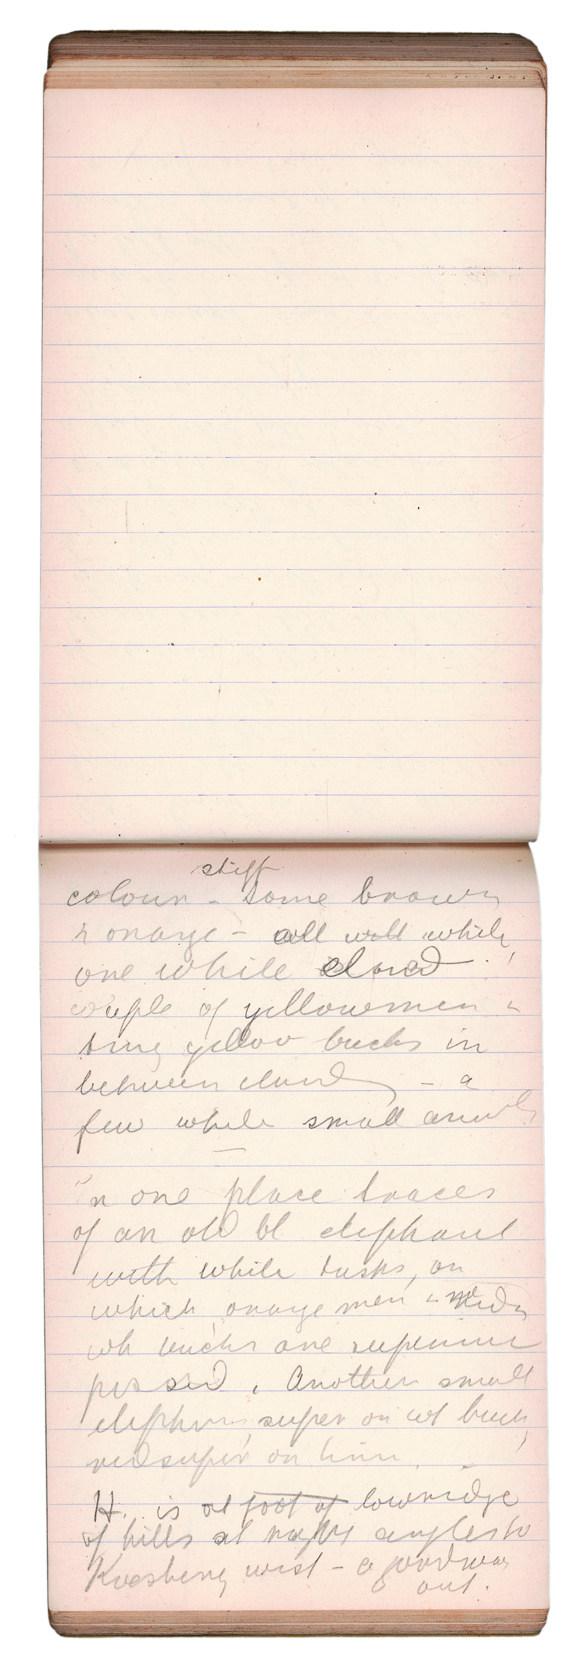 stiff
colour - some brown
& orange - all with white
one white eland.
couple of yellow men &
tiny yellow bucks in
between eland - a
few white small animals
In one place traces
of an old bl elephant
with white tusks, on
which orange men &
wh bucks are superim
posed. Another small
elephant super on wt buck,
red super on him.
H. is at foot of low ridge
of hills at right angles to
Koesberg west - a good way
out.